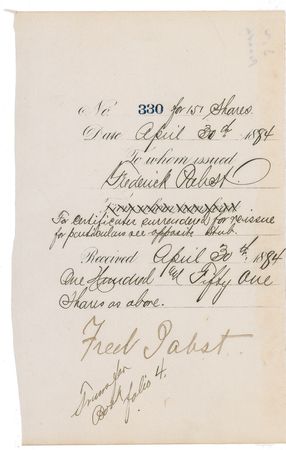 No. 330 for 151 Shares
Date April 30th 1894
To whom issued
Frederick Pabst
For certificates surrendered for reissue
for particulars see opposite stub.
Received April 30th 1894
One Hundred & Fifty One
Shares as above.
Fred Pabst.
Transfer
Book folio 4.